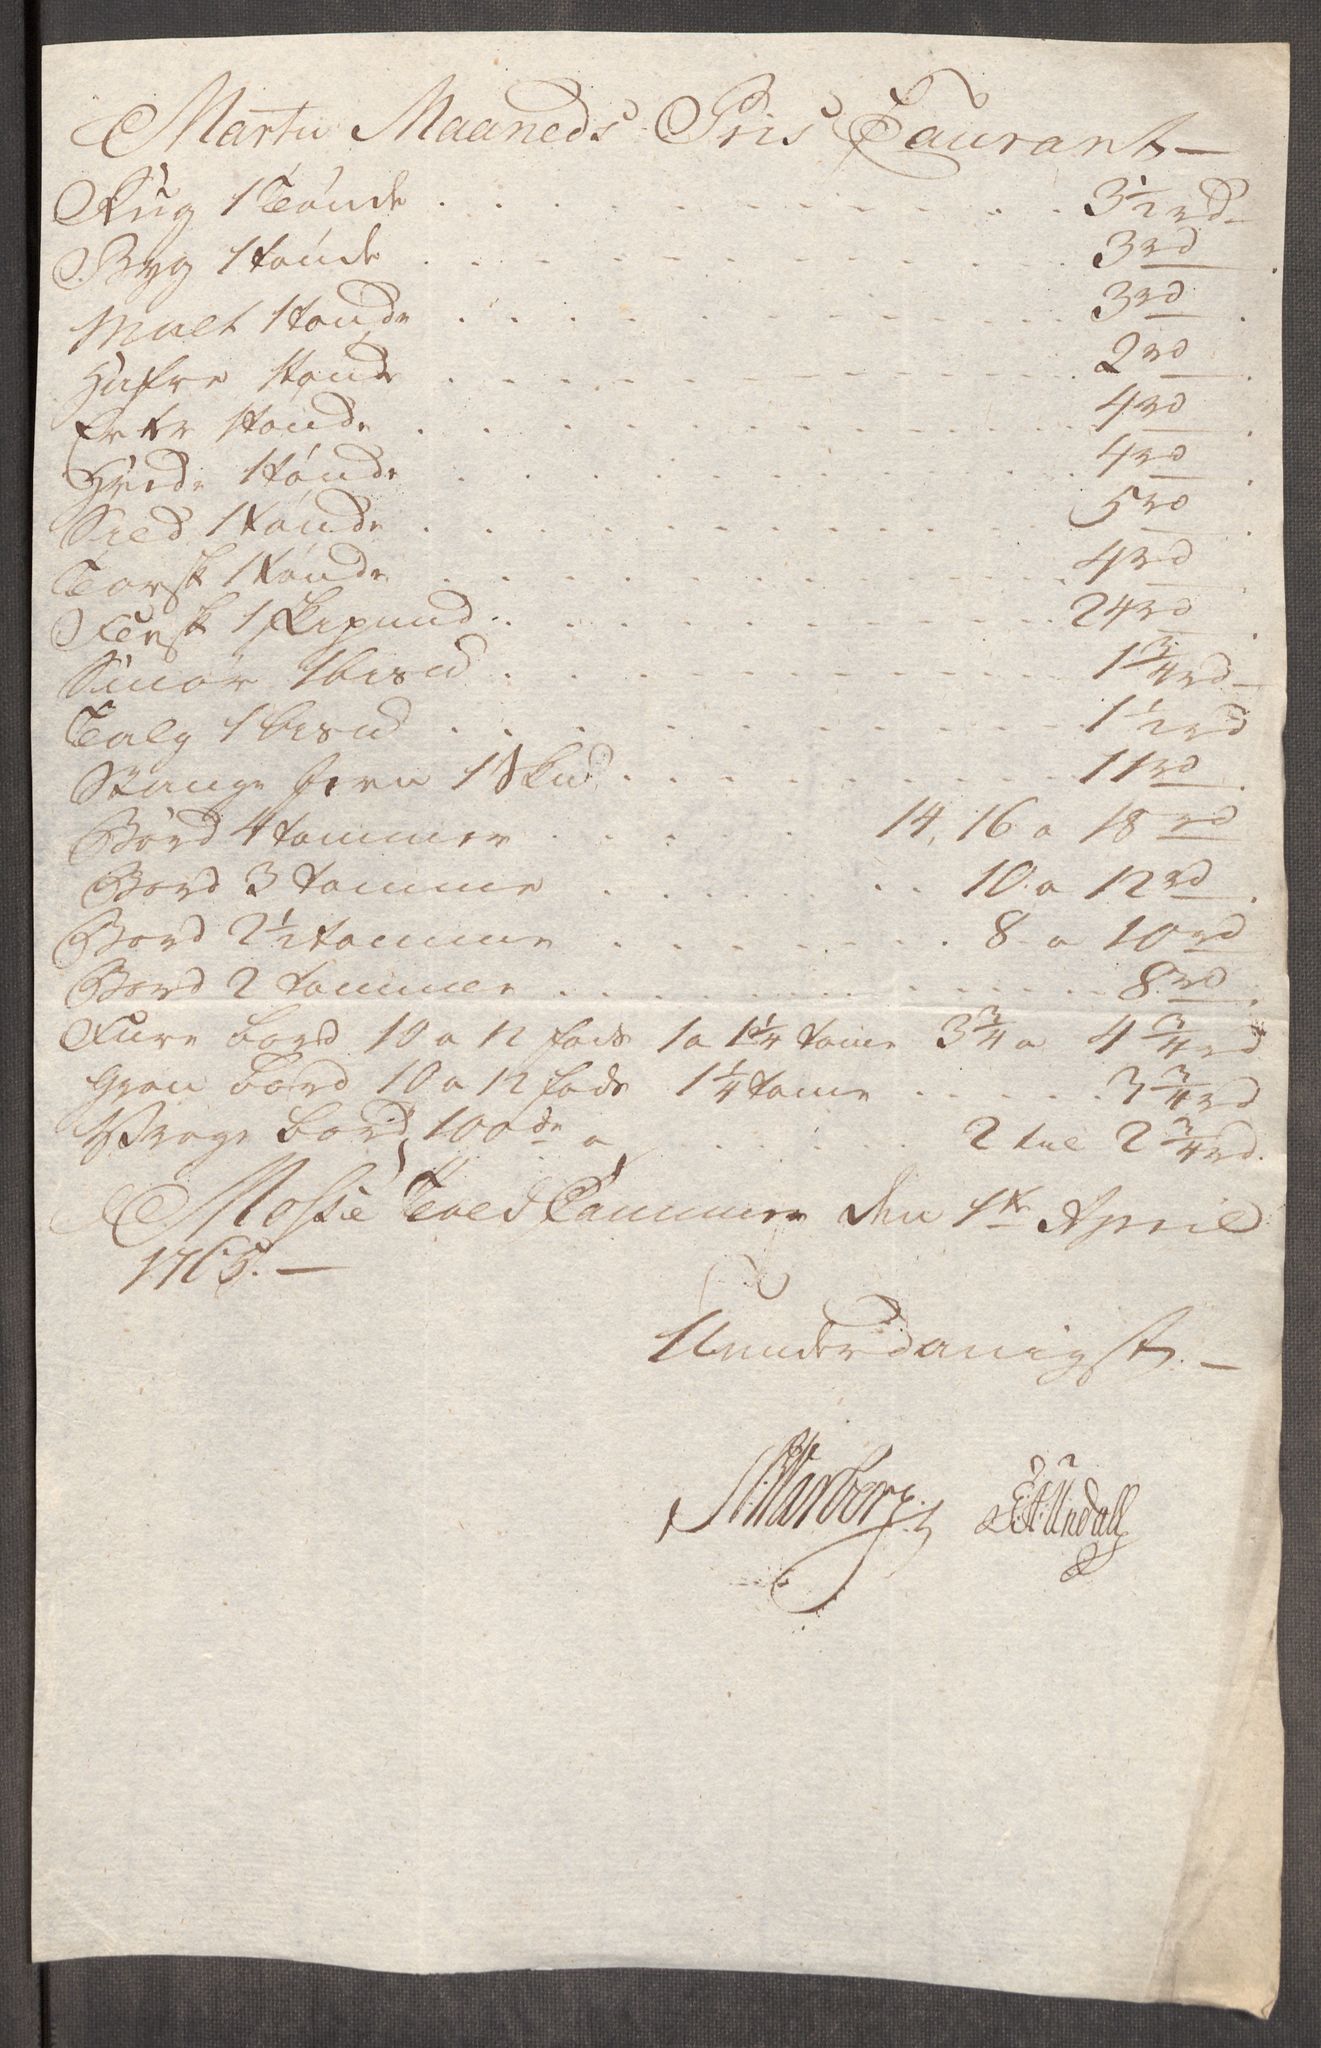 Martii Maaneds Pris Caurant
Rug 1 Tønde 3 1/2 rd
Byg 1 tønde 3 rd
Malt 1 tønde 3 rd
Hafre 1 tønde 2 rd
Erter 1 tønde 4 rd
Hvede 1 tønde 4 rd
Sild 1 tønde 5 rd
Torsk 1 tønde 4 rd
Flesk 1 skepund 24 rd
Smør 1 bis℔ 1 3/4 rd
Talg 1 bis℔ 1 1/2 rd
Stange jern 1 sk℔ 11 rd
Bord 4 tommer 14, 16 a 18 rd
Bord 3 tomme 10 a 12 rd
Bord 2 1/2 tomme 8 a 10 rd
Bord 2 tommer 8 rd
Fure bord 10 a 12 fods 1 a 1 1/4 tome 3 3/4 a 4 3/4 rd
Gran bord 10 a 12 fods 1 1/4 tome 3 3/4 rd
Vrage bord 100de a 2 til 2 3/4 rd.
Mosse Told Cammer den 1te April
1765.
Underdanigst
Warberg. Undall